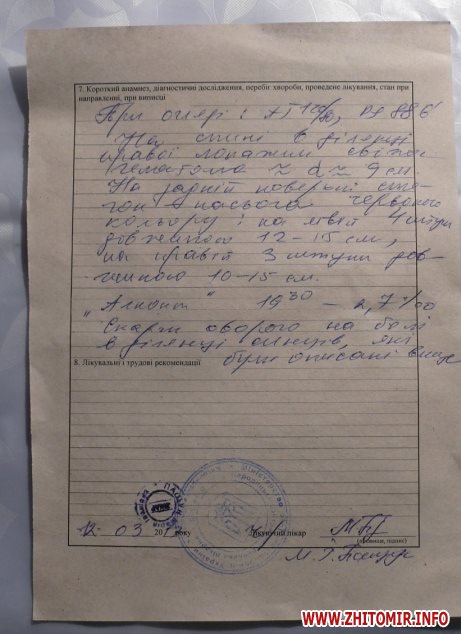 7. Короткий анамнез, діагностичні дослідження, перебіг хвороби, проведене лікування, стан при
направленні, при виписці
При огляді: АТ 120/80, PS 88 6'
На спині в ділянці
правої лопатки свіжа
гематома ≈ d ≈ 9 см.
На задній поверхні сте-
гон червоного
кольору: на лівій 4 штуки
довжиною 12-15 см,
на правій 3 штуки дов-
жиною 10-15 см.
"Алконт" 19 30 - 2,7 ‰
Скарги хворого на болі
в ділянці синців, які
були описані вище
8. Лікувальні і трудові рекомендації
12 03 201 року
Лікуючий лікар
(прізвище, підпис)
WWW.ZHITOMIR.INFO